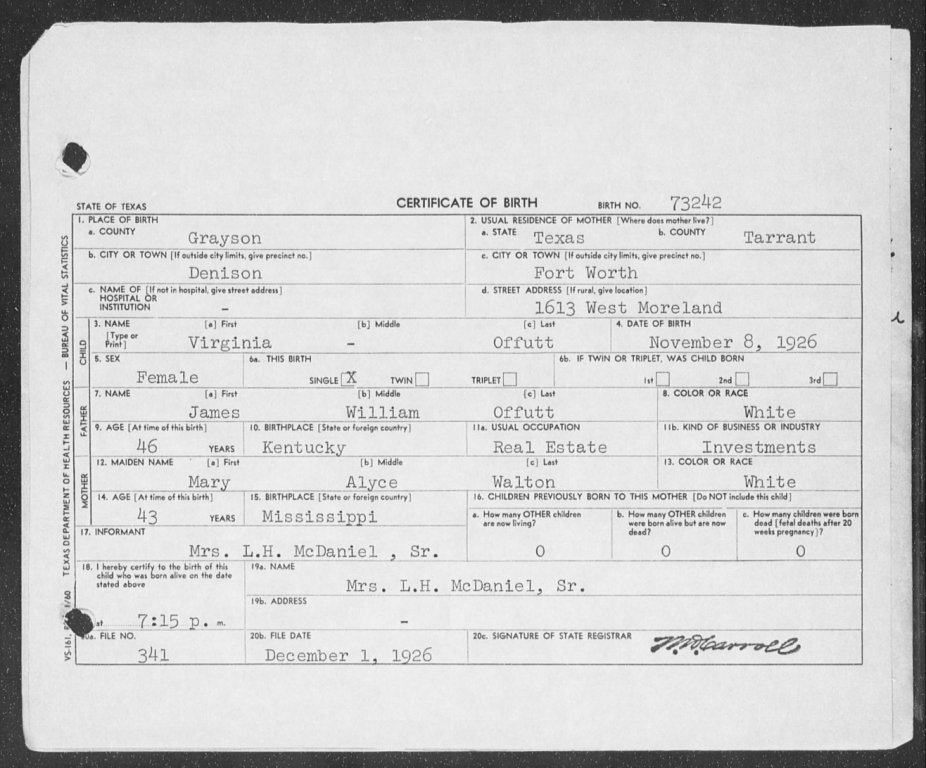 STATE OF TEXAS CERTIFICATE OF BIRTH BIRTH NO. 73242
1. PLACE OF BIRTH
a. COUNTY Grayson
2. USUAL RESIDENCE OF MOTHER [Where does mother live?]
a. STATE Texas b. COUNTY Tarrant
b. CITY OR TOWN [If outside city limits, give precinct no.]
Denison
c. CITY OR TOWN [If outside city limits, give precinct no.]
Fort Worth
c. NAME OF [If not in hospital, give street address]
HOSPITAL OR
INSTITUTION -
d. STREET ADDRESS [If rural, give location]
1613 West Moreland
CHILD
3. NAME [a] First [b] Middle [c] Last 4. DATE OF BIRTH
[Type or
Print] Virginia - Offutt November 8, 1926
5. SEX 6a. THIS BIRTH 6b. IF TWIN OR TRIPLET, WAS CHILD BORN
Female SINGLE X TWIN TRIPLET 1st 2nd 3rd
FATHER
7. NAME [a] First [b] Middle [c] Last 8. COLOR OR RACE
James William Offutt White
9. AGE [At time of this birth] 10. BIRTHPLACE [State or foreign country] 11a. USUAL OCCUPATION 11b. KIND OF BUSINESS OR INDUSTRY
46 YEARS Kentucky Real Estate Investments
MOTHER
12. MAIDEN NAME [a] First [b] Middle [c] Last 13. COLOR OR RACE
Mary Alyce Walton White
14. AGE [At time of this birth] 15. BIRTHPLACE [State or foreign country] 16. CHILDREN PREVIOUSLY BORN TO THIS MOTHER [Do NOT include this child]
43 YEARS Mississippi
a. How many OTHER children
are now living?
0
b. How many OTHER children
were born alive but are now
dead?
0
c. How many children were born
dead [fetal deaths after 20
weeks pregnancy]?
0
17. INFORMANT
Mrs. L.H. McDaniel , Sr.
18. I hereby certify to the birth of this
child who was born alive on the date
stated above
at 7:15 p. m.
19a. NAME
Mrs. L.H. McDaniel, Sr.
19b. ADDRESS
-
20a. FILE NO. 20b. FILE DATE 20c. SIGNATURE OF STATE REGISTRAR
341 December 1, 1926
TEXAS DEPARTMENT OF HEALTH RESOURCES — BUREAU OF VITAL STATISTICS
VS-161, 1/60